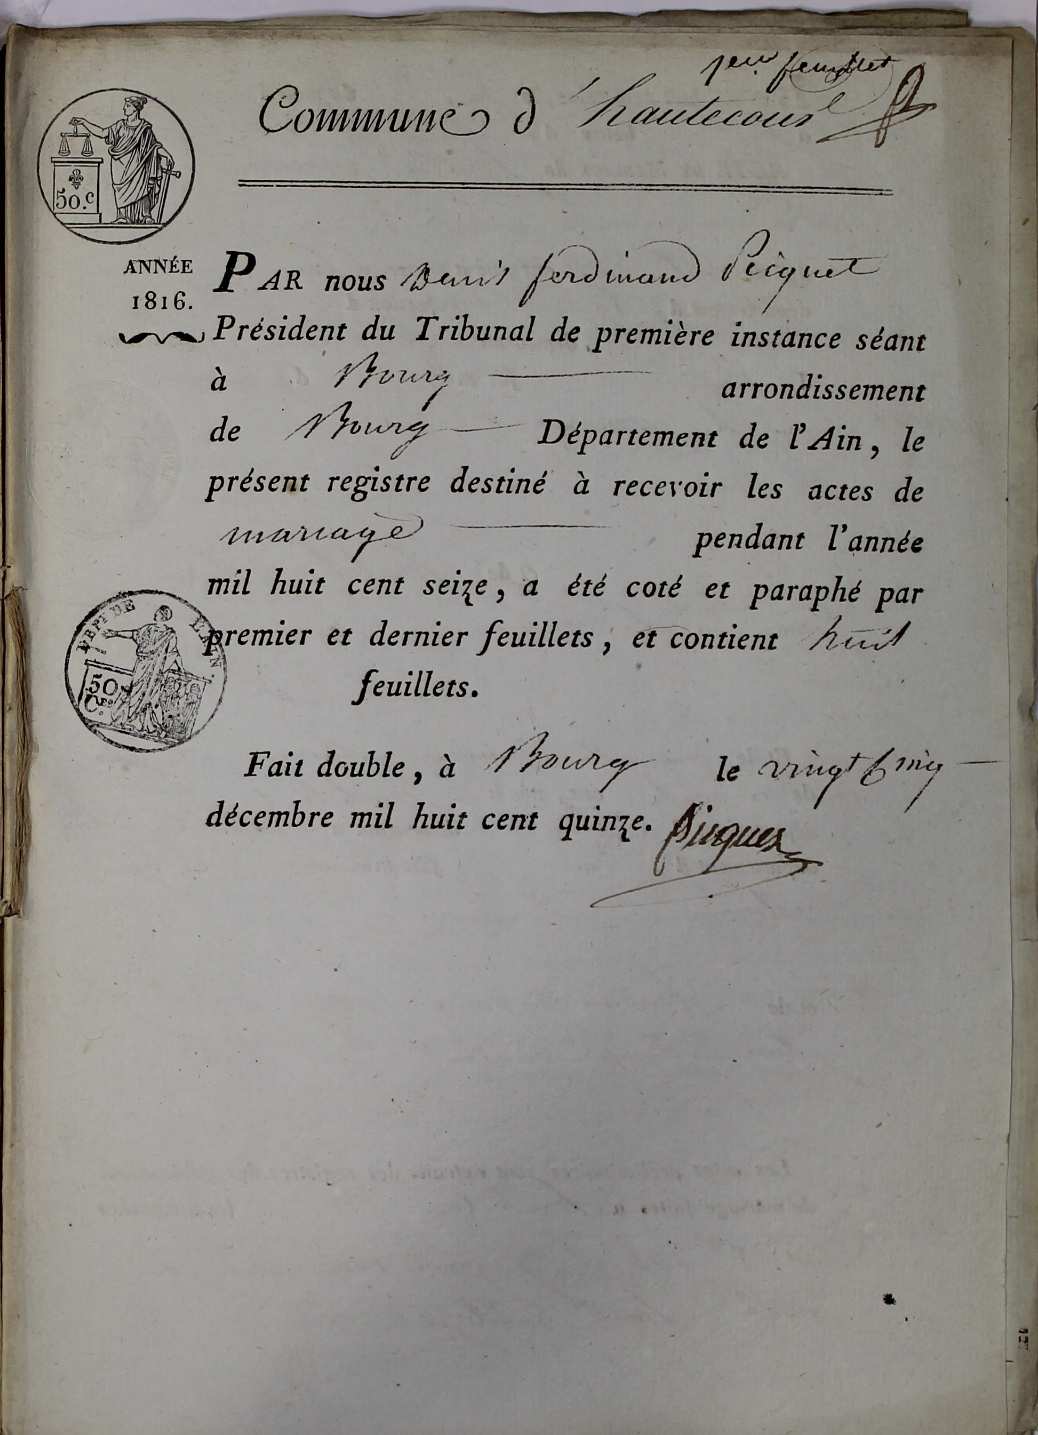 1er feuillet
Commune d'hautecour
50.c
ANNÉE
1816.
PAR nous Denis ferdinand Picquet
Président du Tribunal de première instance séant
à Bourg arrondissement
de Bourg Département de l'Ain, le
présent registre destiné à recevoir les actes de
mariage pendant l'année
mil huit cent seize, a été coté et paraphé par
premier et dernier feuillets, et contient huit
feuillets.
DEPT DE L'AIN.
50
Ces
Fait double, à Bourg le vingt Cinq
décembre mil huit cent quinze. Picquet